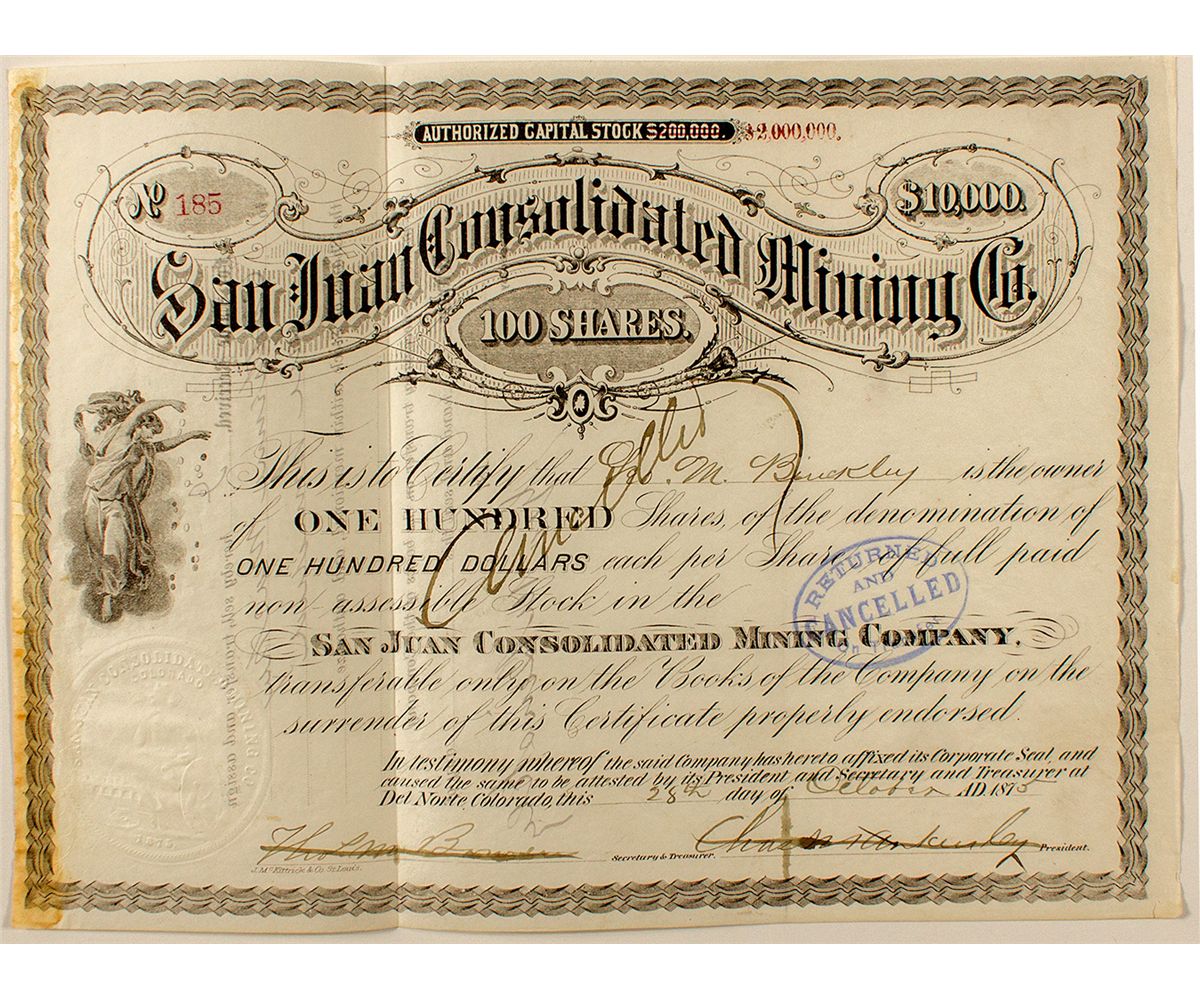 AUTHORIZED CAPITAL STOCK $200,000. $2,000,000.
No 185
$10,000.
San Juan Consolidated Mining Co.
100 SHARES.
This is to Certify that Geo. M. Buckley is the owner
of ONE HUNDRED Shares, of the denomination of
ONE HUNDRED DOLLARS each per Share of full paid
non-assessible Stock in the
SAN JUAN CONSOLIDATED MINING COMPANY,
transferable only on the Books of the Company on the
surrender of this Certificate properly endorsed.
Cancelled
RETURNED
AND
CANCELLED
In testimony whereof the said Company has hereto affixed its Corporate Seal, and
caused the same to be attested by its President and Secretary and Treasurer at
Del Norte, Colorado, this 28th day of October AD. 1875
Thos. M. Bowen
Secretary & Treasurer.
President.
J. McKittrick & Co. St. Louis.
COLORADO
1875